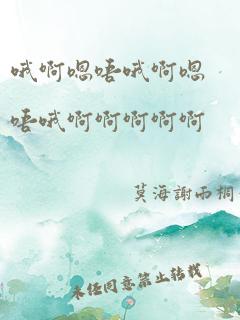 哦啊嗯唔哦啊嗯
唔哦啊啊啊啊啊
莫海謝雨桐
未经同意禁止转载